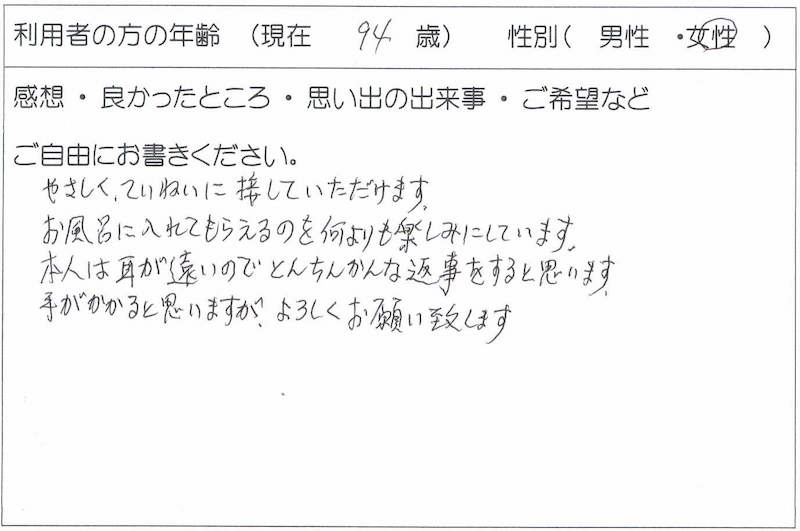 利用者の方の年齢 （現在 94 歳） 性別（ 男性 ・女性 ）
感想 ・ 良かったところ ・ 思い出の出来事 ・ ご希望など
ご自由にお書きください。
やさしく、ていねいに接していただけます。
お風呂に入れてもらえるのを何よりも楽しみにしています。
本人は耳が遠いのでとんちんかんな返事をすると思います。
手がかかると思いますが、よろしくお願い致します